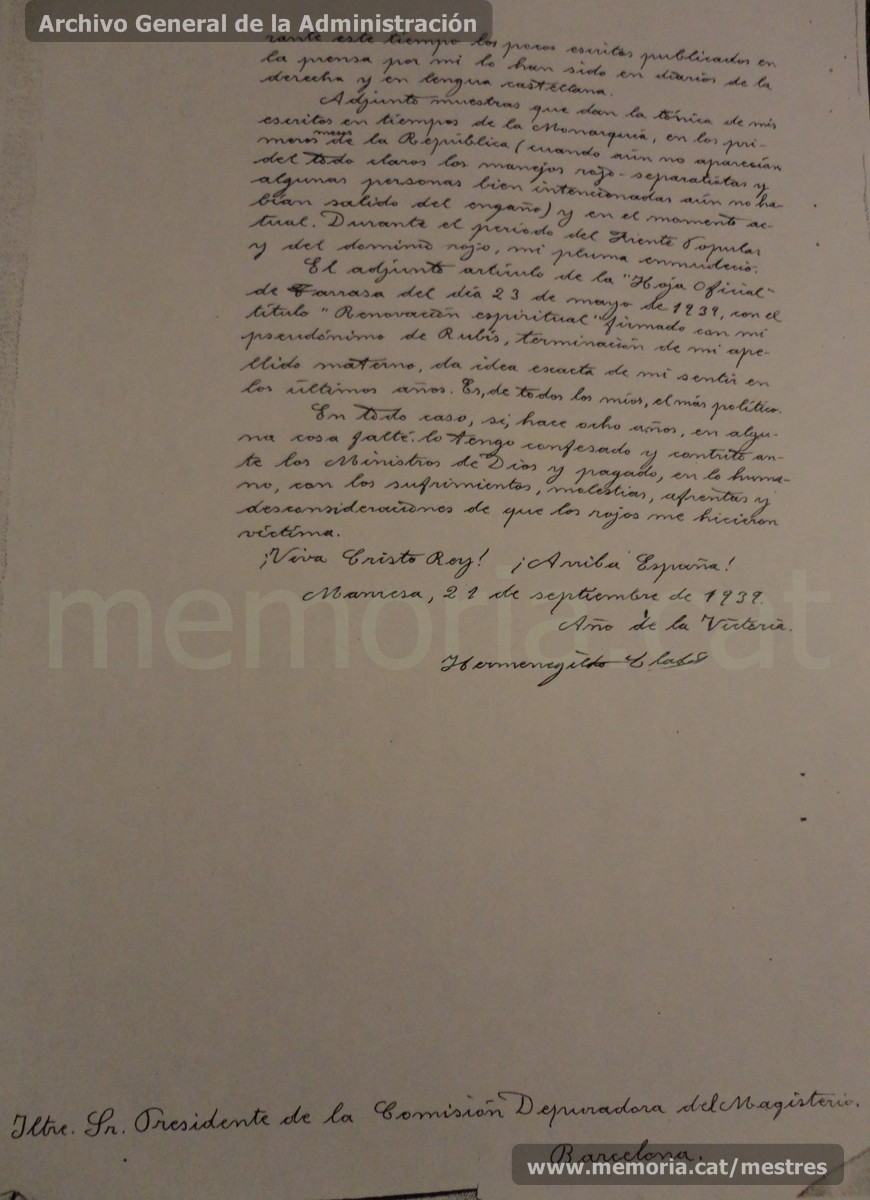 Archivo General de la Administración
rante este tiempo los pocos escritos publicados en
la prensa por mi lo han sido en diarios de la
derecha y en lengua castellana.
Adjunto muestras que dan la tónica de mis
escritos en tiempos de la Monarquía, en los pri-
meros meses de la República (cuando aún no aparecían
del todo claros los manejos rojo-separatistas y
algunas personas bien intencionadas aún no ha-
bían salido del engaño) y en el momento ac-
tual. Durante el periodo del Frente Popular
y del dominio rojo, mi pluma enmudeció.
El adjunto artículo de la "Hoja Oficial"
de Tarrasa del día 23 de mayo de 1939, con el
título "Renovación espiritual" firmado con mi
pseudónimo de Rubís, terminación de mi ape-
llido materno, da idea escacta de mi sentir en
los últimos años. Es, de todos los míos, el más político.
En todo caso, si, hace ocho años, en algu-
na cosa falté. lo tengo confesado y contrito an-
te los Ministros de Dios y pagado, en lo huma-
no, con los sufrimientos, molestias, afrentas y
desconsideraciones de que los rojos me hicieron
víctima.
¡Viva Cristo Rey! ¡Arriba España!
Manresa, 21 de septiembre de 1939.
Año de la Victoria.
Hermenegildo
memoria.cat
Iltre. Sr. Presidente de la Comisión Depuradora del Magisterio.
Barcelona.
www.memoria.cat/mestres